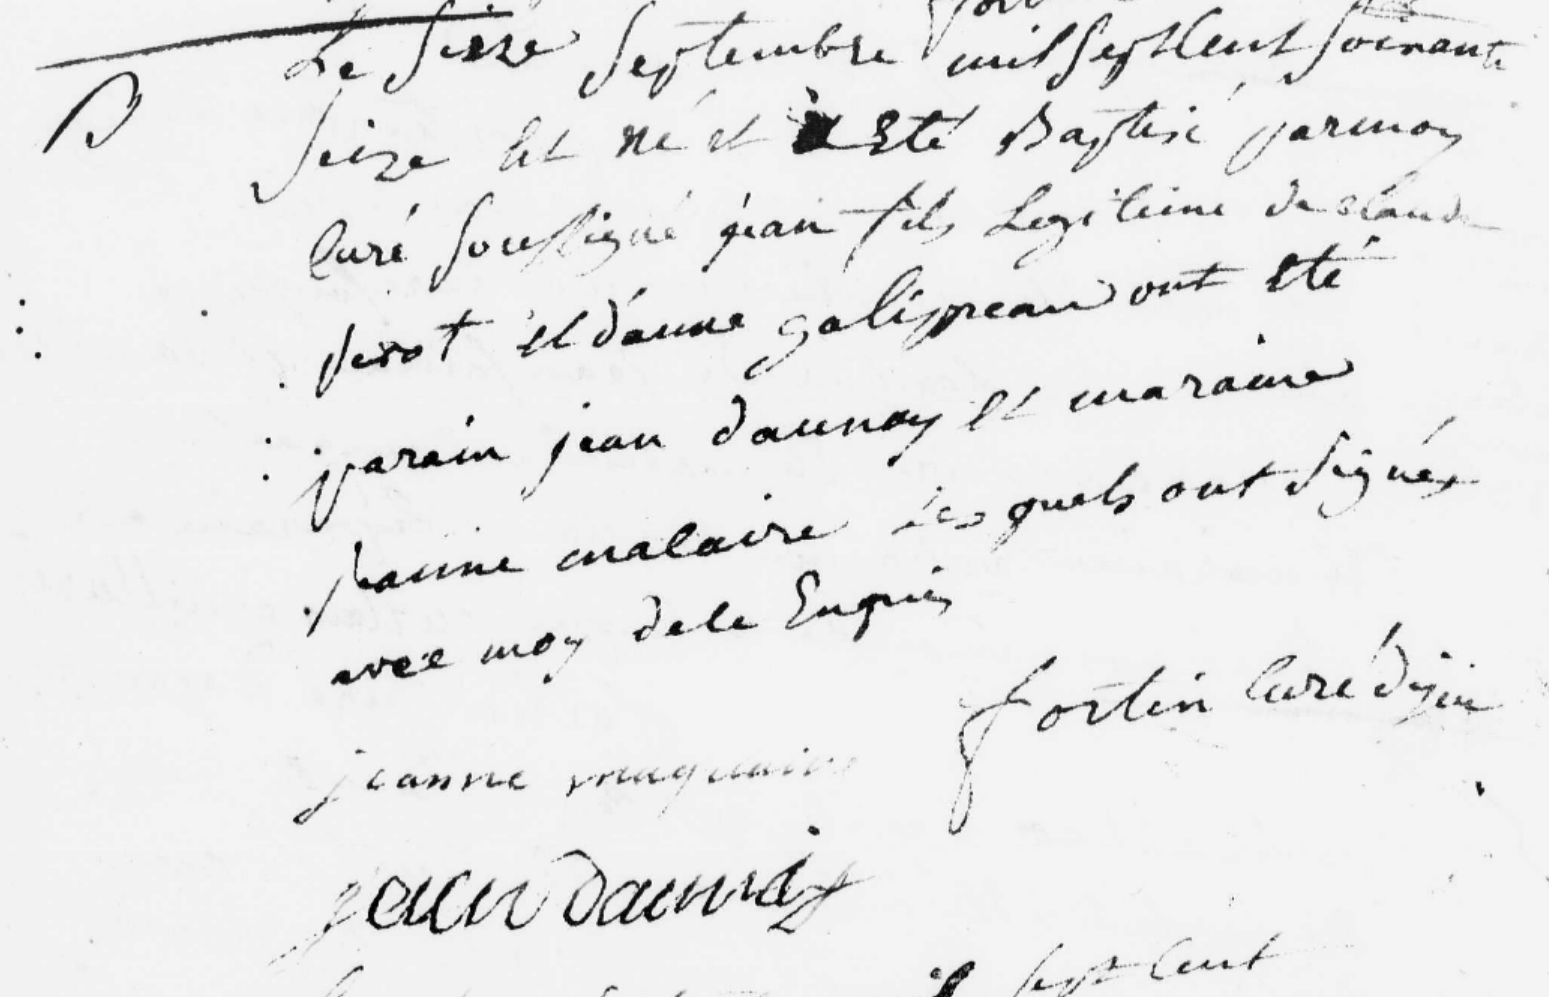 B
Le seize Septembre mil Sept Cent Soixante
Seize Est né et a Eté Baptisé par moy
Curé Soussigné jean fils Legitime de claude
perot Et d'anne galippeau ont Eté
parain jean daunay Et maraine
jeanne malaire Lesquels ont Signés
avec moy de le Enquis
fortin Curé
jeanne
jean daunay
Sept Cent